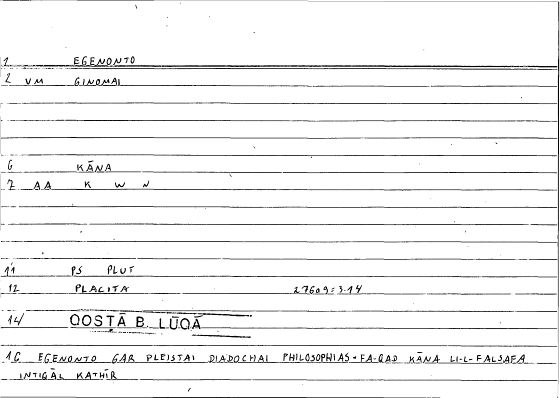 1 EGENONTO
2 VM GINOMAI
6 KĀNA
7 AA K W N
11 PS PLUT
12 PLACITA 276a9=3.14
14 QOSTĀ B. LŪQĀ
16 EGENONTO GAR PLEISTAI DIADOCHAI PHILOSOPHIAS = FA-QAD KĀNA LI-L-FALSAFA
INTIQĀL KATHĪR